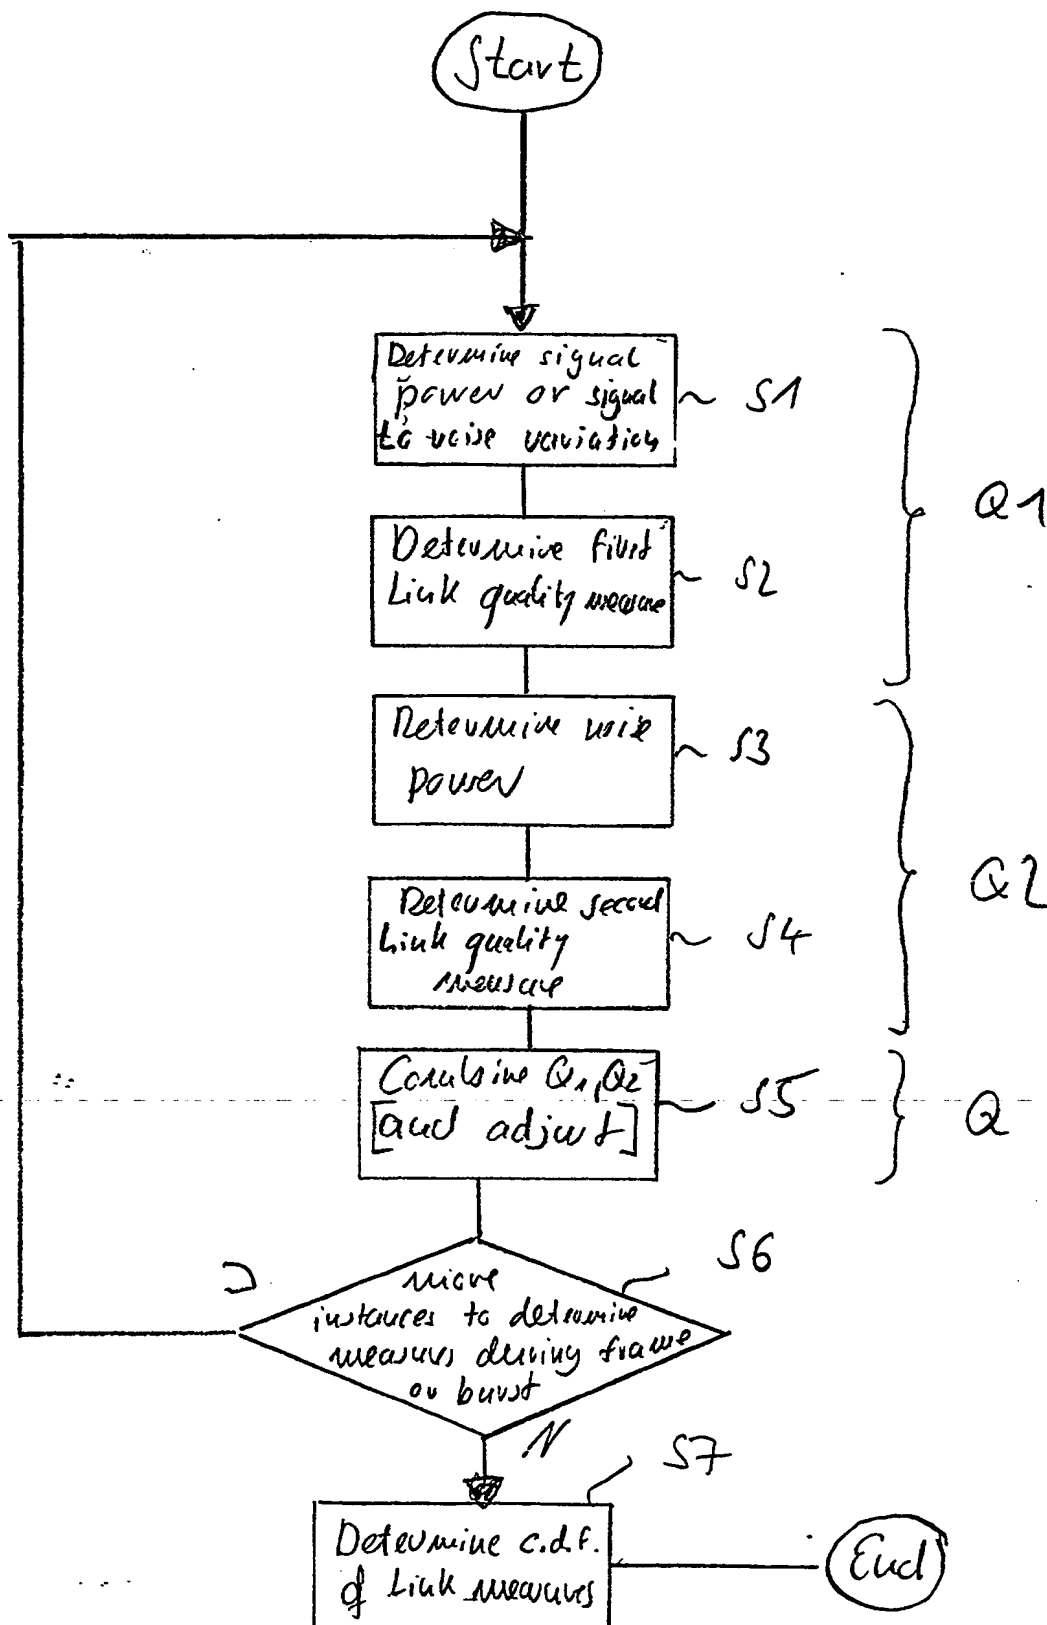 Start
Determine signal
power or signal
to noise variation
S1
Q1
Determine first
Link quality measure
S2
Determine noise
power
S3
Q2
Determine second
Link quality
measure
S4
Combine Q1, Q2
[and adjust]
S5
Q
S6
more
instances to determine
measures during frame
or burst
N
S7
Determine c.d.f.
of Link measures
End